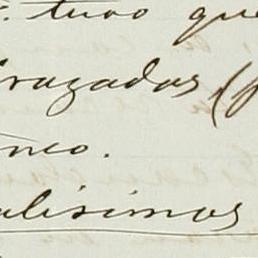 tuvo que
razadas, (p
neo.
alisimos